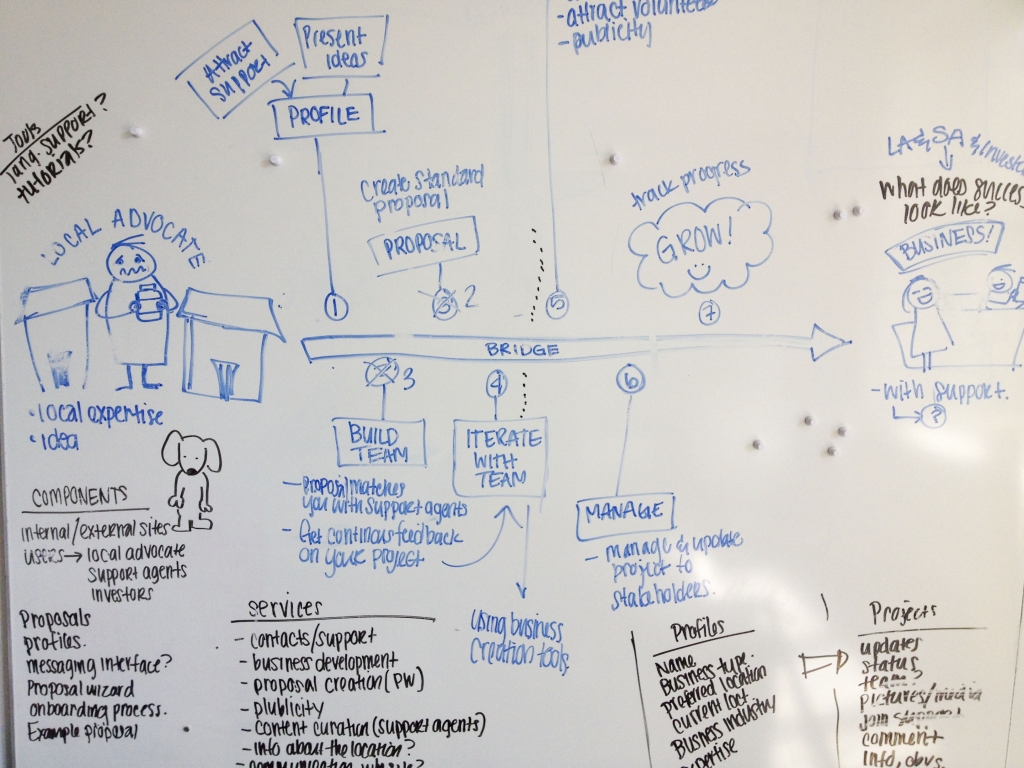 - attract volunteers
- publicity
Attract
support
Present
ideas
PROFILE
tutorials?
LOCAL ADVOCATE
• local expertise
• idea
Create Standard
proposal
PROPOSAL
track progress
GROW!
1
3 2
5
7
BRIDGE
2 3
4
6
LA & SA &
What does
look like?
BUSINESS!
- with support.
?
BUILD
TEAM
- Proposal matches
you with support agents
- Get continous feedback
on your project
ITERATE
WITH
TEAM
using business
creation tools
MANAGE
- manage & update
project to
stakeholders.
COMPONENTS
internal/external sites
users → local advocate
support agents
investors
Proposals
profiles.
messaging interface?
Proposal wizard
onboarding process.
Example proposal
services
- contacts/support
- business development
- proposal creation (PW)
- plublicity
- content curation (support agents)
- info about the location?
Profiles
Name
Business type.
preferred location
current loct
Business industry
Expertise
Projects
updates
status
team?
pictures/media
join support
comment
info, obvs.